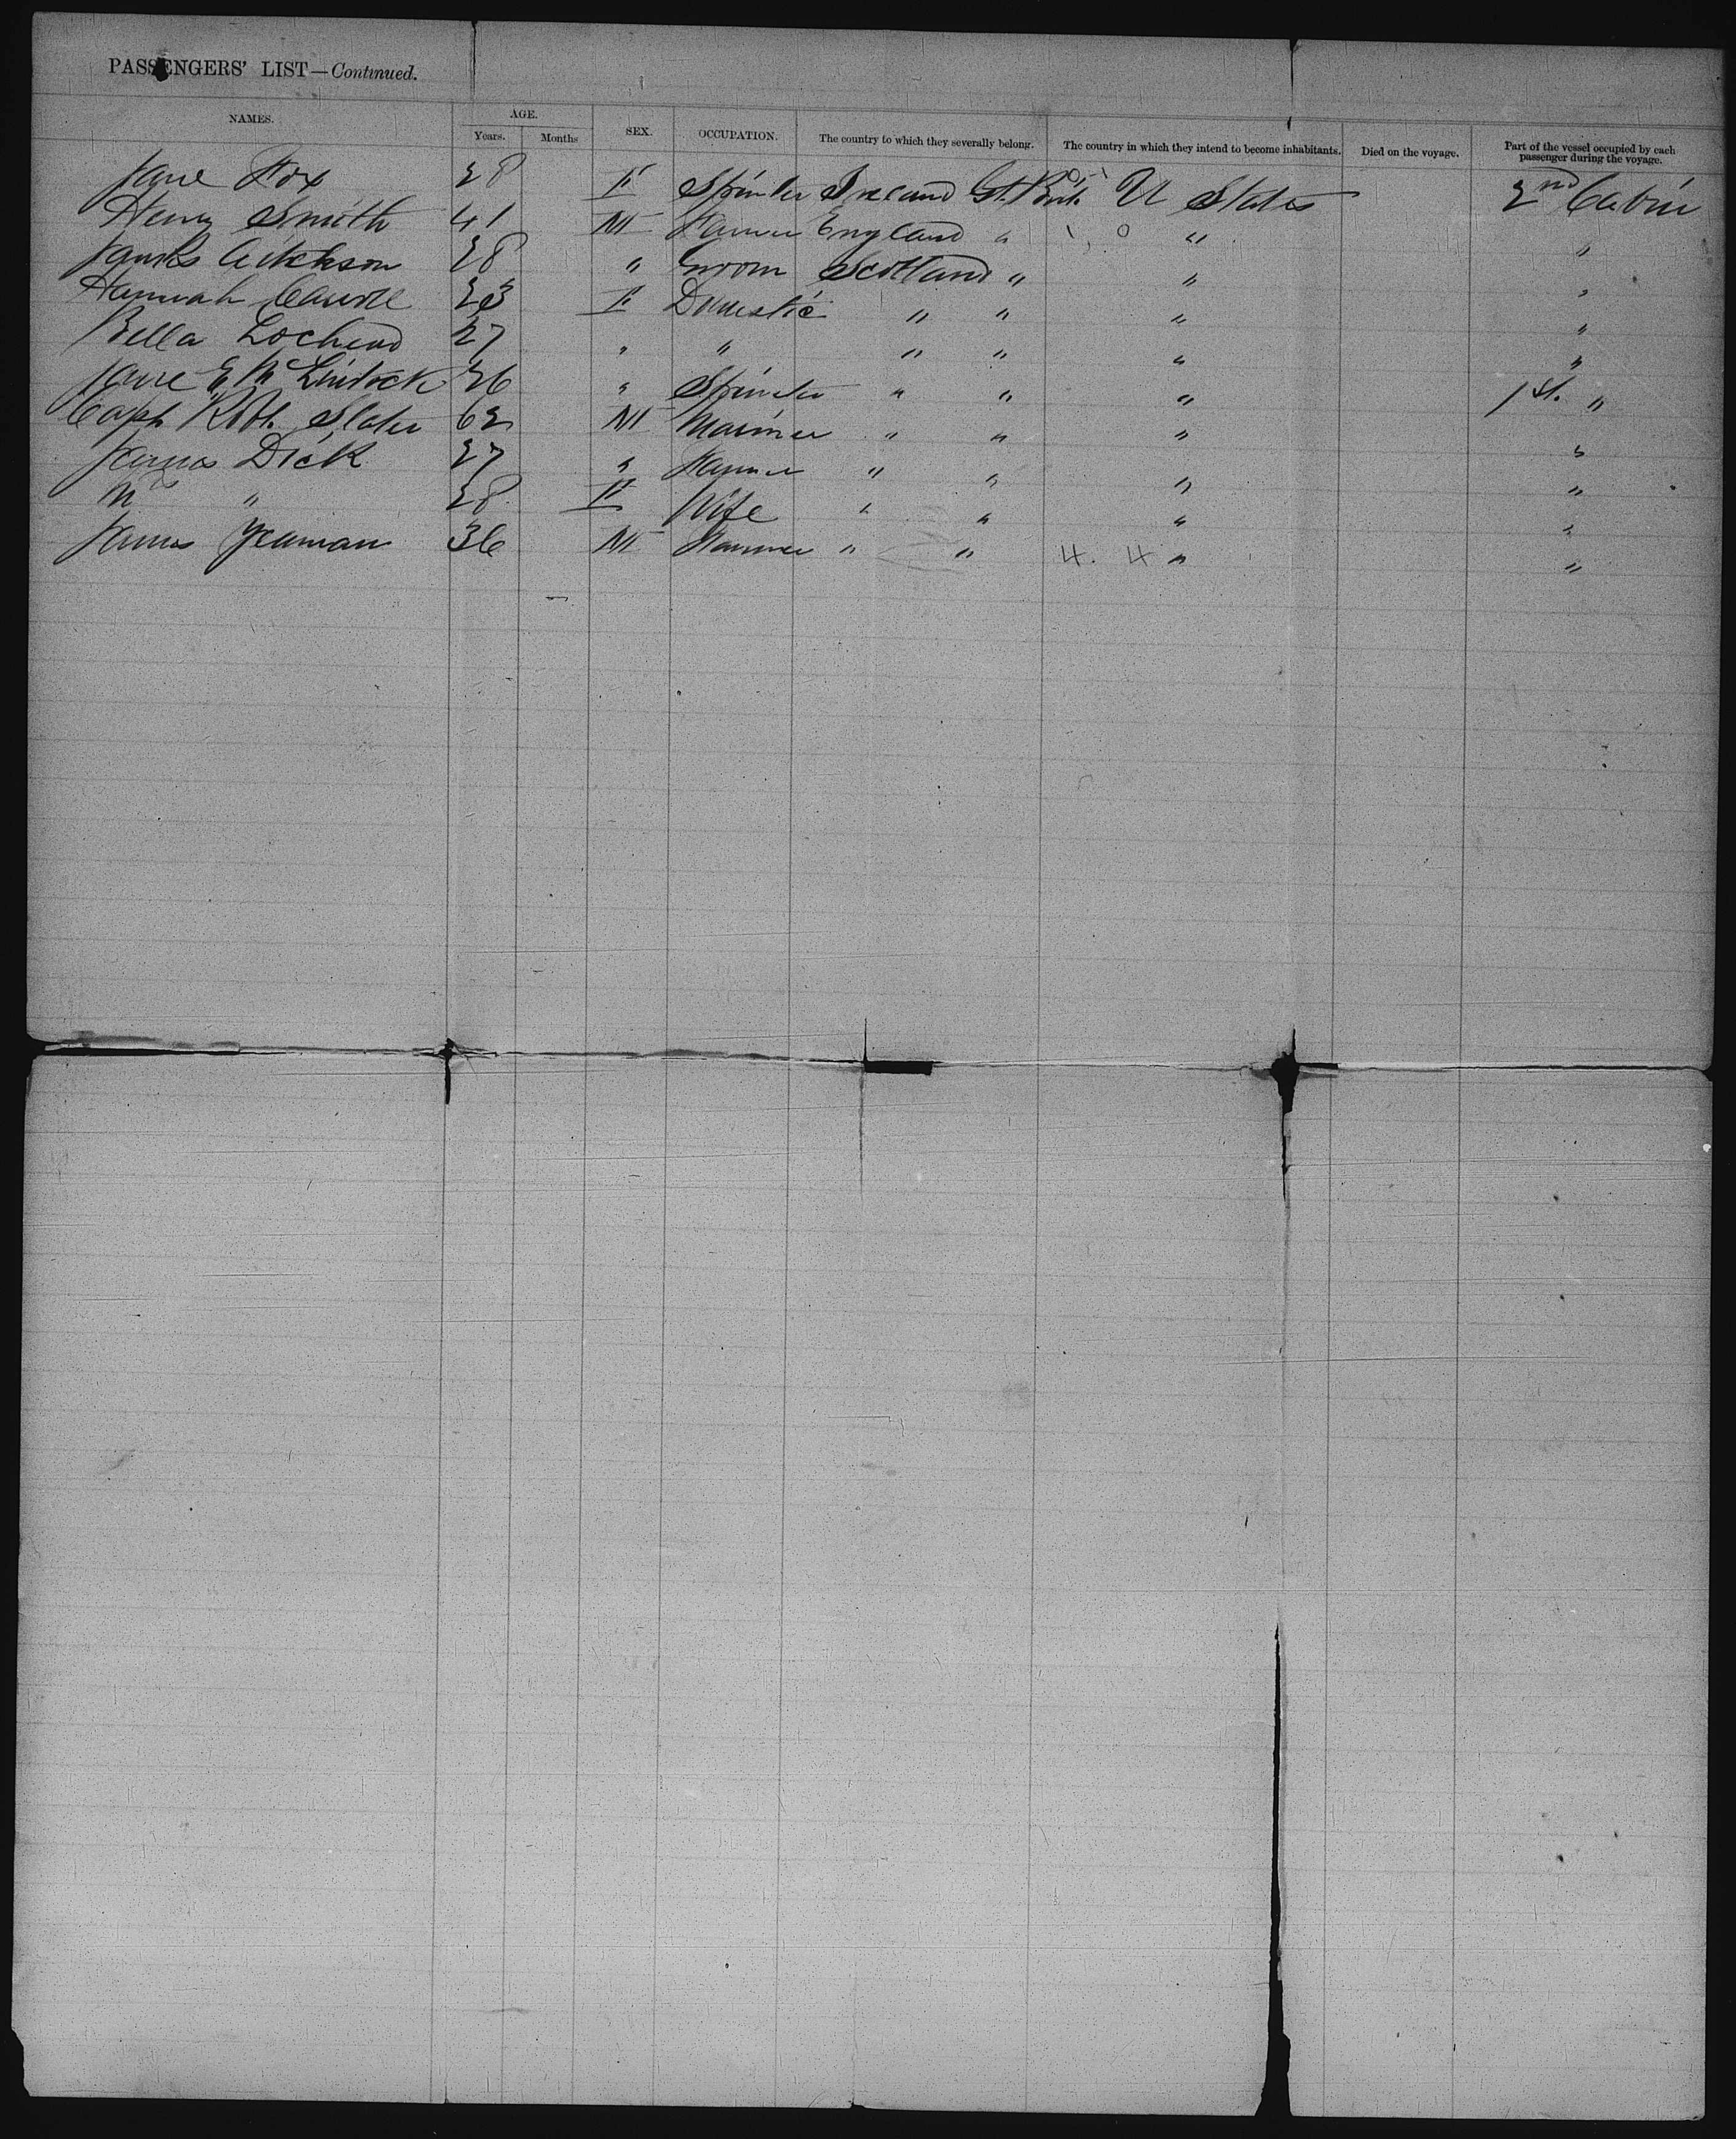 PASSENGERS' LIST—Continued.
NAMES. AGE. Years. Months SEX. OCCUPATION. The country to which they severally belong. The country in which they intend to become inhabitants. Died on the voyage. Part of the vessel occupied by each passenger during the voyage.
Jane Fox 28 F Spinster Ireland Gt. Brit. U States 2nd Cabin
Henry Smith 41 M Farmer England " " "
James Aitchson 28 " Groom Scotland " " "
Hannah 23 F Domestic " " " "
Bella Lochead 27 " " " " " "
Jane E 26 " Spinster " " " 1st. "
Capt Robt. Slater 62 M Mariner " " " "
James Dick 27 " Farmer " " " "
M " 28 F Wife " " " "
James Yeaman 36 M Farmer " " 4. 4 " "